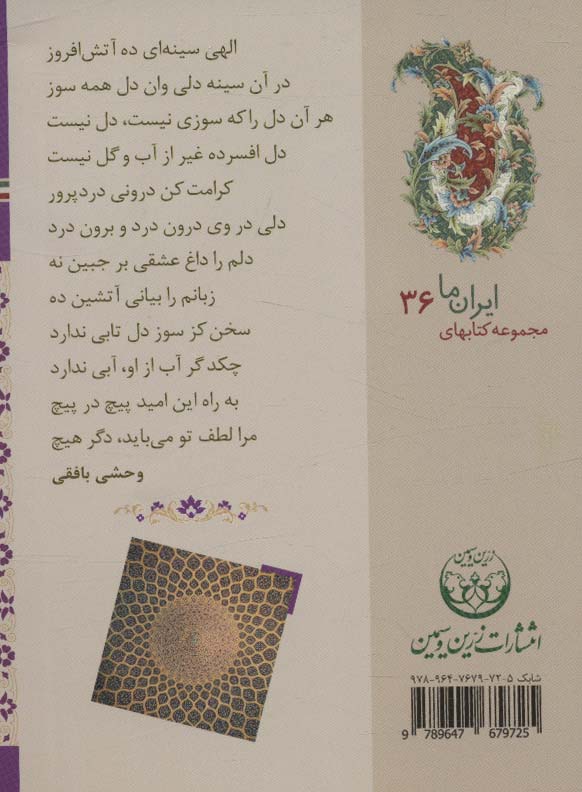 الهی سینه‌ای ده آتش‌افروز
در آن سینه دلی وان دل همه سوز
هر آن دل را که سوزی نیست، دل نیست
دل افسرده غیر از آب و گل نیست
کرامت کن درونی دردپرور
دلی در وی درون درد و برون درد
دلم را داغ عشقی بر جبین نه
زبانم را بیانی آتشین ده
سخن کز سوز دل تابی ندارد
چکد گر آب از او، آبی ندارد
به راه این امید پیچ در پیچ
مرا لطف تو می‌باید، دگر هیچ
وحشی بافقی
ایران ما ۳۶
مجموعه کتابهای
زرین و سیمین
انتشارات زرین و سیمین
شابک ۵-۷۲-۷۶۷۹-۹۶۴-۹۷۸
9 789647 679725